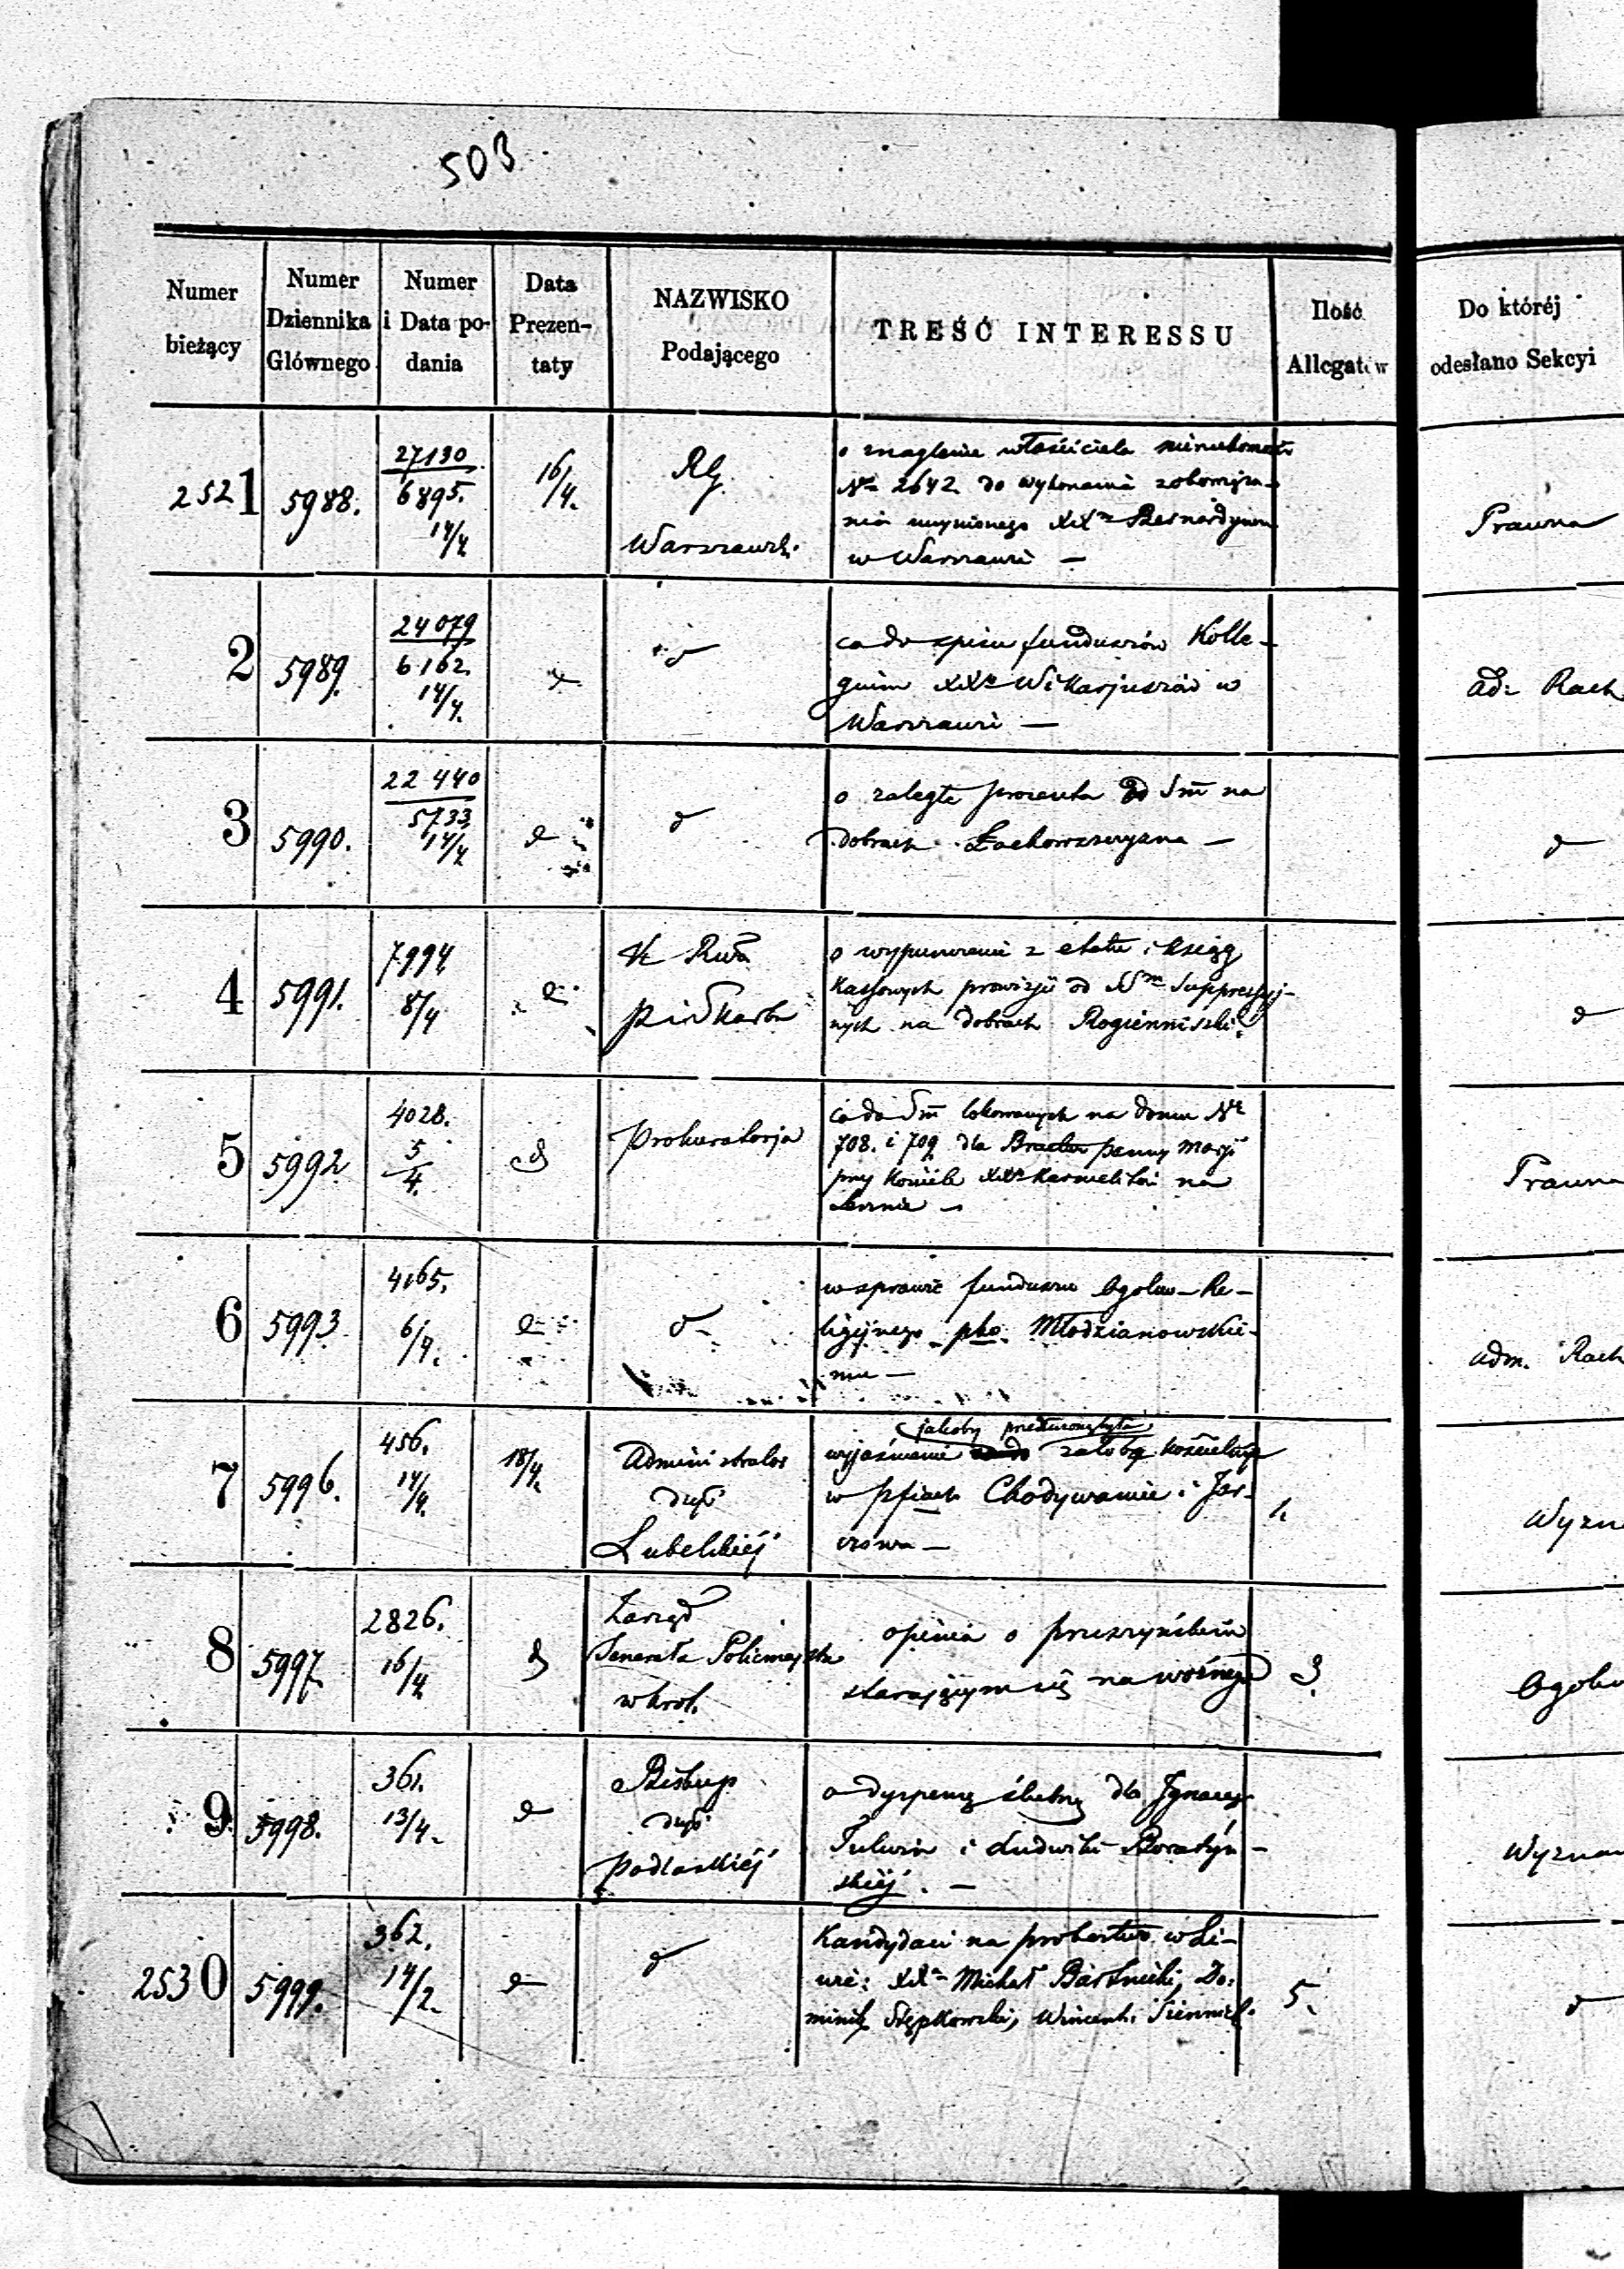 503
Numer bieżący
Numer Dziennika Głównego
Numer i Data podania
Data Prezentaty
NAZWISKO Podającego
TREŚĆ INTERESSU
Ilość Allegatów
Do któréj odesłano Sekcyi
2521 5988. 27130 6895. 14/4 16/4. RG. Warszawsk.
o znaglenie właściciela nieruchomości
Nr 2642 do wykonania zobowiąza-
nia XXn Bernardynom
w Warszawie —
Prawna
2 5989. 24079 6162. 14/4.
co do spisu funduszów Kolle-
gium XXn Wikarjuszów w
Warszawie —
ad: Rach
3 5990. 22440 5733. 14/4
o zaległe procenta od Sm na
dobrach
4 5991. 7994 8/4
o z etatu i ksiąg
Kassowych prowizji od SSm Suppressyj-
nych na dobrach
5 5992 4028. 5/4. Prokuratorja
co do Sm lokowanych na domu Nr
708. i 709 dla Bractwa panny Maryi
przy Kościele XXn Karmelitów na
Lesznie —
Prawna
6 5993 4165. 6/4.
w sprawie funduszu Ogólno-Re-
ligijnego pko Młodzianowskie-
mu —
adm. Rach
7 5996. 456. 14/4. 18/4. Administrator dyi Lubelskiéj
jakoby
wyjaśnienie żałobę kościelną
w pfiach Chodywańce i Jar-
czowa —
1.
Wyzn
8 5997. 2826. 16/4 Zarząd Jenerała Policmajstra w Król.
opinia o Pruszyńskim
starającym się na woźnego
3.
Ogóln
9 5998. 361. 13/4. Biskup dyi Podlaskiéj
o dyspensę ślubną dla Ignacego
i Ludwiki Boratyń-
skiéj. —
Wyznań
2530 5999. 362. 14/2.
Kandydaci na probostwo w Li-
wie: XXn Michał Do-
minik Stępkowski, Wincenty
5.